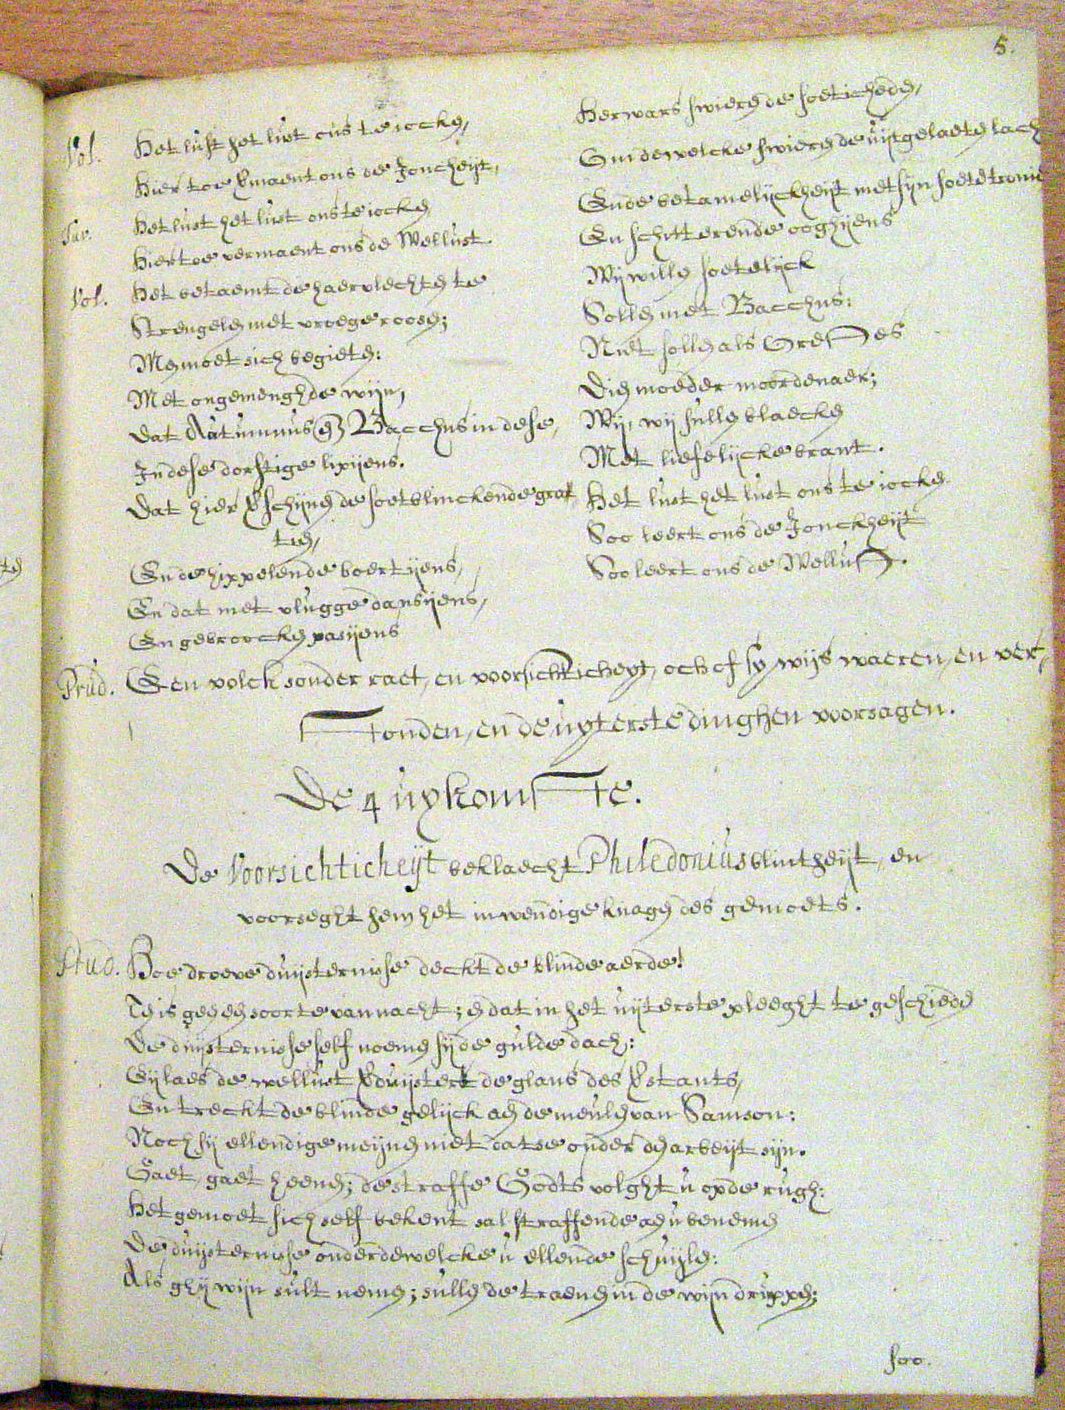 5.
Vol. Het lust het lust ons te iocken,
Hier toe vmaent ons de Joncheijt,
Juv. Het lust het lust ons te iocken
Hier toe vermaent ons de Wellust.
Vol. Het betaemt de haervlechten te
Strengelen met vroege roosen;
Men moet sich begieten:
Met ongemenghde wijn,
dat Autumnus en Bacchus in dese,
In dese dorstige lipijens.
dat hier vschijnen de soetblinckende grat
tien,
En de hippelende boertijens,
En dat met vlugge dansijens,
En gebroocken pasijens
Herwars swieren de soeticheden,
Om dewelcke swieren de uijtgelaeten lach
Ende betamelijckheijt met sijn soete
En schitterende ooghijens
Wij willen soetelijck
Sollen met Bacchus:
Niet sollen als Orestes
dien moeder moordenaer;
Wij, wij sullen blaecken
Met liefelijcke brant.
Het lust het lust ons te iocken
Soo leert ons de Jonckheijt
Soo leert ons de Wellust.
Prud. Een volck sonder raet, en voorsichticheyt, och of sy wijs waeren, en ver,
stonden, en de uyterste dinghen voorsagen.
De 4 uykomste.
De Voorsichticheijt beklaecht Philedonius blintheijt, en
voorseght hem het inwendige knagen des gemoets.
Hoe droeve duijsternisse deckt de blinde aerde!
soorte van nacht; en dat in het uijterste pleeght te geschieden
De duijsternisse self noemen sij de gulde dach:
Eijlaes de wellust vduijstert de glans des vstants,
En treckt de blinde gelijck aen de meulen van Samson:
Noch sij ellendige meijnen niet datse onder den arbeijt sijn.
Gaet, gaet heenen; de straffe Godts volght u op de rugh:
Het gemoet sich self bekent sal straffende aen u benemen
De duijsternisse onder dewelcke u ellende schuijlen:
Als ghij wijn sult nemen; sullen de traenen in de wijn druppen;
soo.